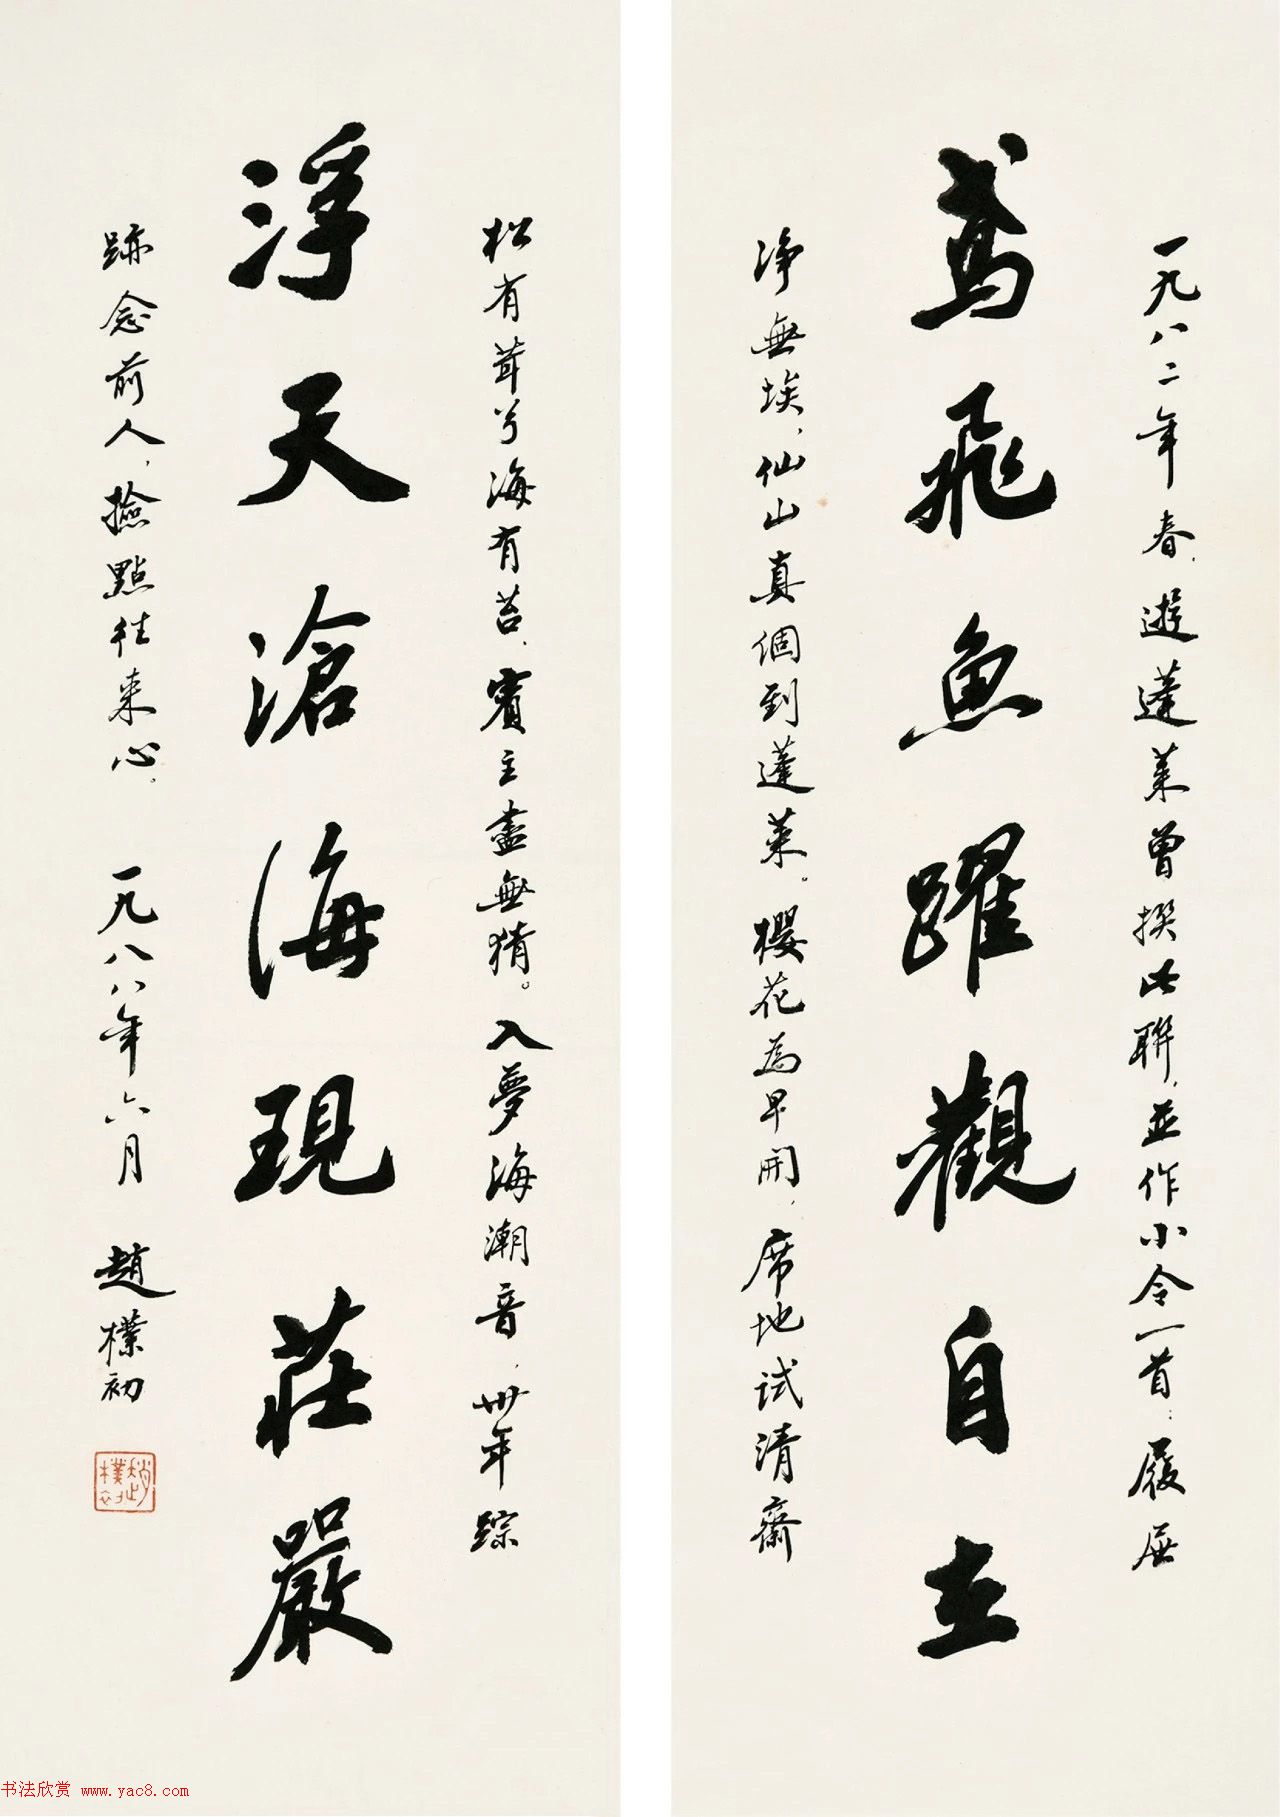 鸢飛魚躍觀自在
一九八二年春，遊蓬萊曾撰此聯，並作小令一首：履展
净無埃，仙山真個到蓬萊。櫻花為早開，席地試清齋
浮天滄海現莊嚴
松有茸兮海有苔，賓主盡無猜。入夢海潮音，卅年踪
跡念前人，撿點往来心。一九八八年六月 趙樸初
趙樸初
书法欣赏 www.yac8.com